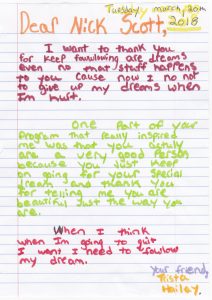 Tuesday march, 20th
Dear Nick Scott, 2018
I want to thank you
for keep fowllowing are dreams
even no that stuff happens
to you cause now I no not
to give up my dreams when
I'm hurt.
One part of your
Program that really inspired
me was that you actully
are a very good Person
because you Just keep
on going for your special
dream and thank you
for telling me you are
beautiful Just the way you
are.
When I think
when I'm going to quit
I want I need to fowllow
my dream.
your friend,
Hailey.